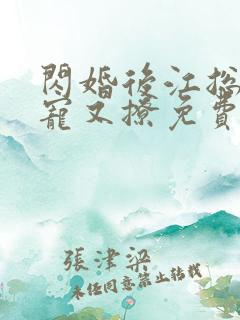 閃婚後江總
寵又撩免費
張津梁
未经同意禁止转载